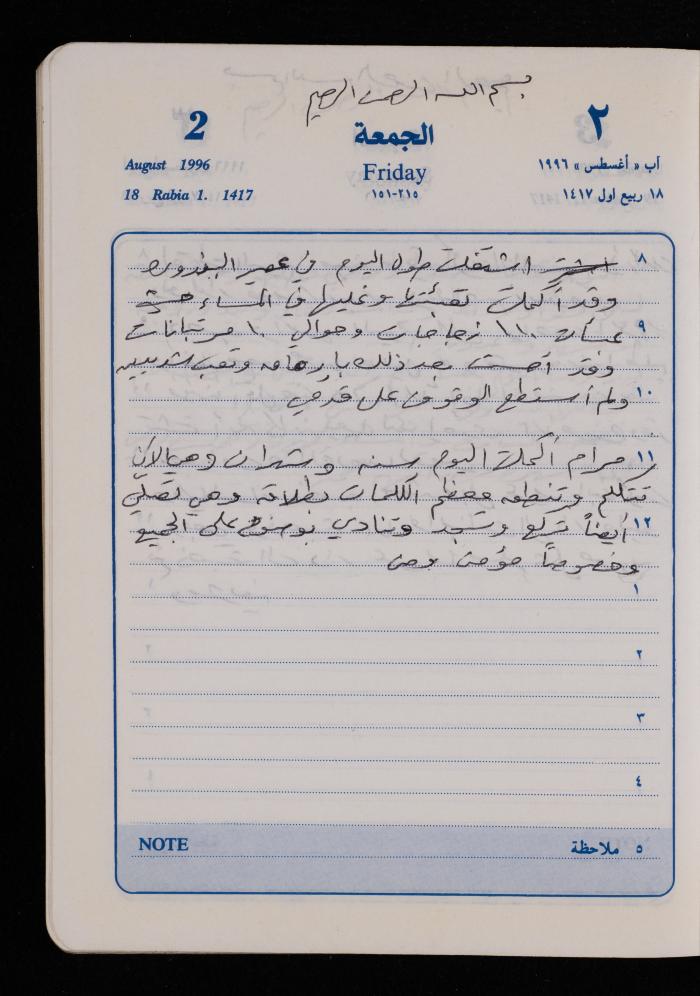 بسم الله الرحمن الرحيم
2
الجمعة
٢
August 1996
Friday
آب « أغسطس » ١٩٩٦
18 Rabia 1. 1417
٢١٥-١٥١
١٨ ربيع اول ١٤١٧
٨ اشتغلت طول اليوم في عصير البندورة
وقد أكملت تعبئتها وغليها في المساء
٩ ١١٠ زجاجات وحوالي ١٠ مرتبانات
وقد أحسست بعد ذلك بإرهاق وتعب شديدين
١٠ ولم أستطع الوقوف على قدمي
١١ مرام أكملت اليوم سنه وشهران وهي الآن
تتكلم وتنطق معظم الكلمات بطلاقة وهي تصلي
١٢ أيضاً تركع وتسجد وتنادي بوضوح على الجميع
وخصوصاً مؤمن
١
٢
٣
٤
NOTE
٥ ملاحظة